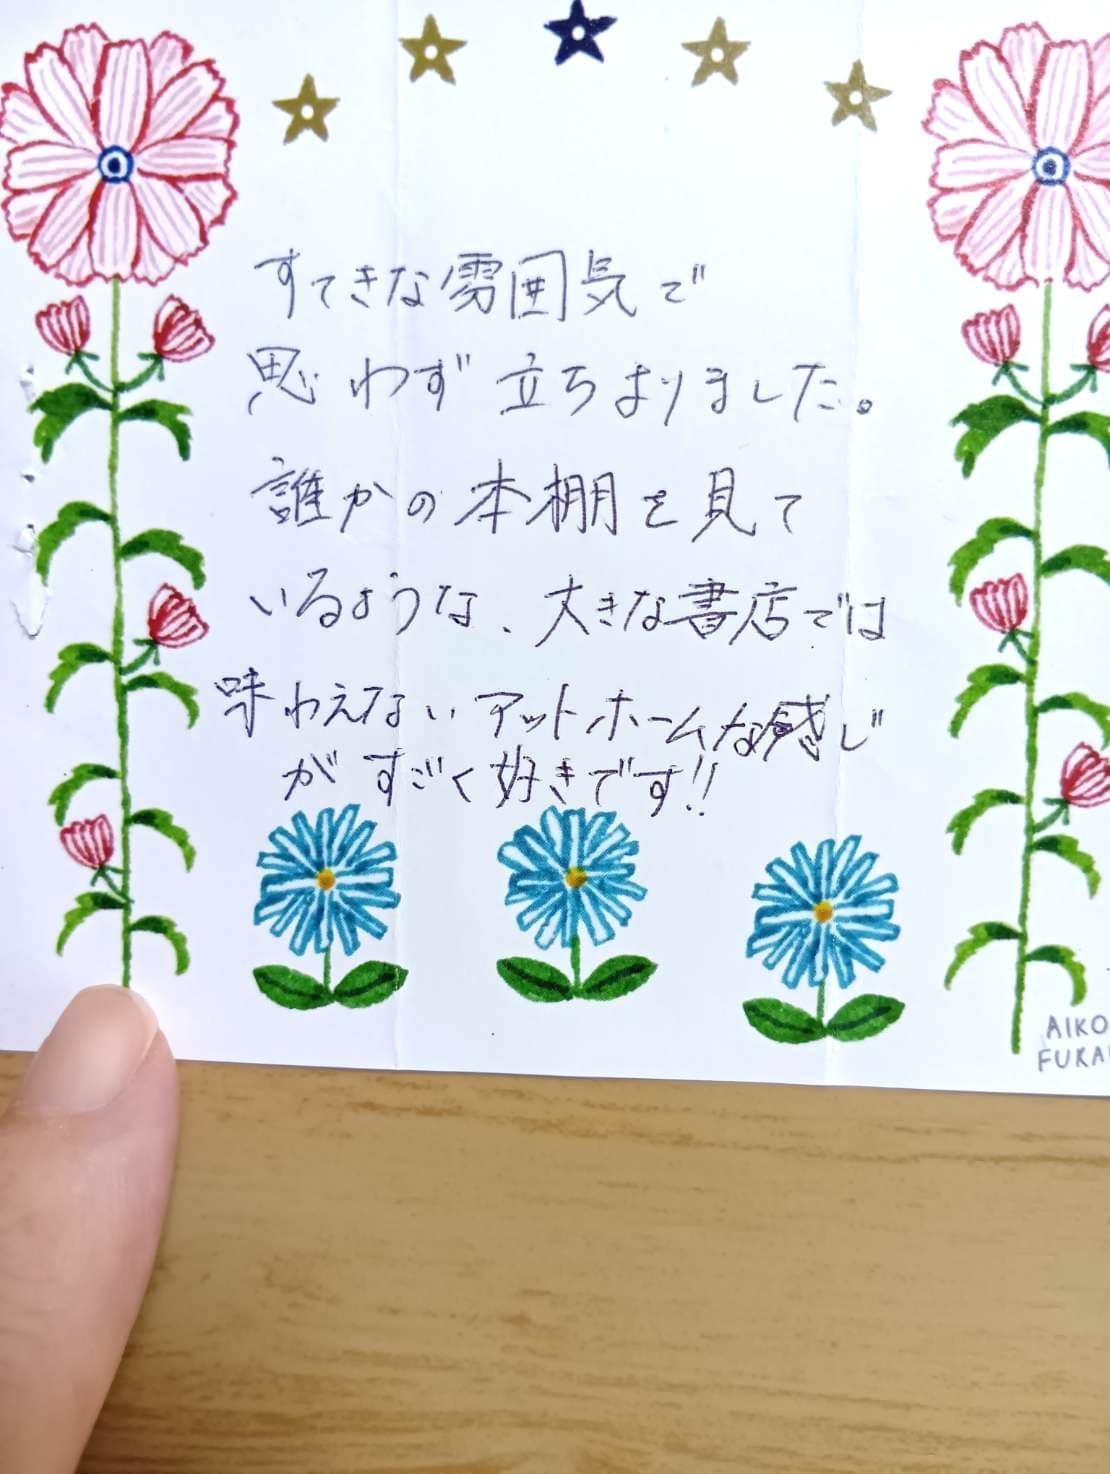 すてきな雰囲気で
思わず立ちよりました。
誰かの本棚を見て
いるような、大きな書店では
味わえないアットホームな感じ
がすごく好きです!!
AIKO